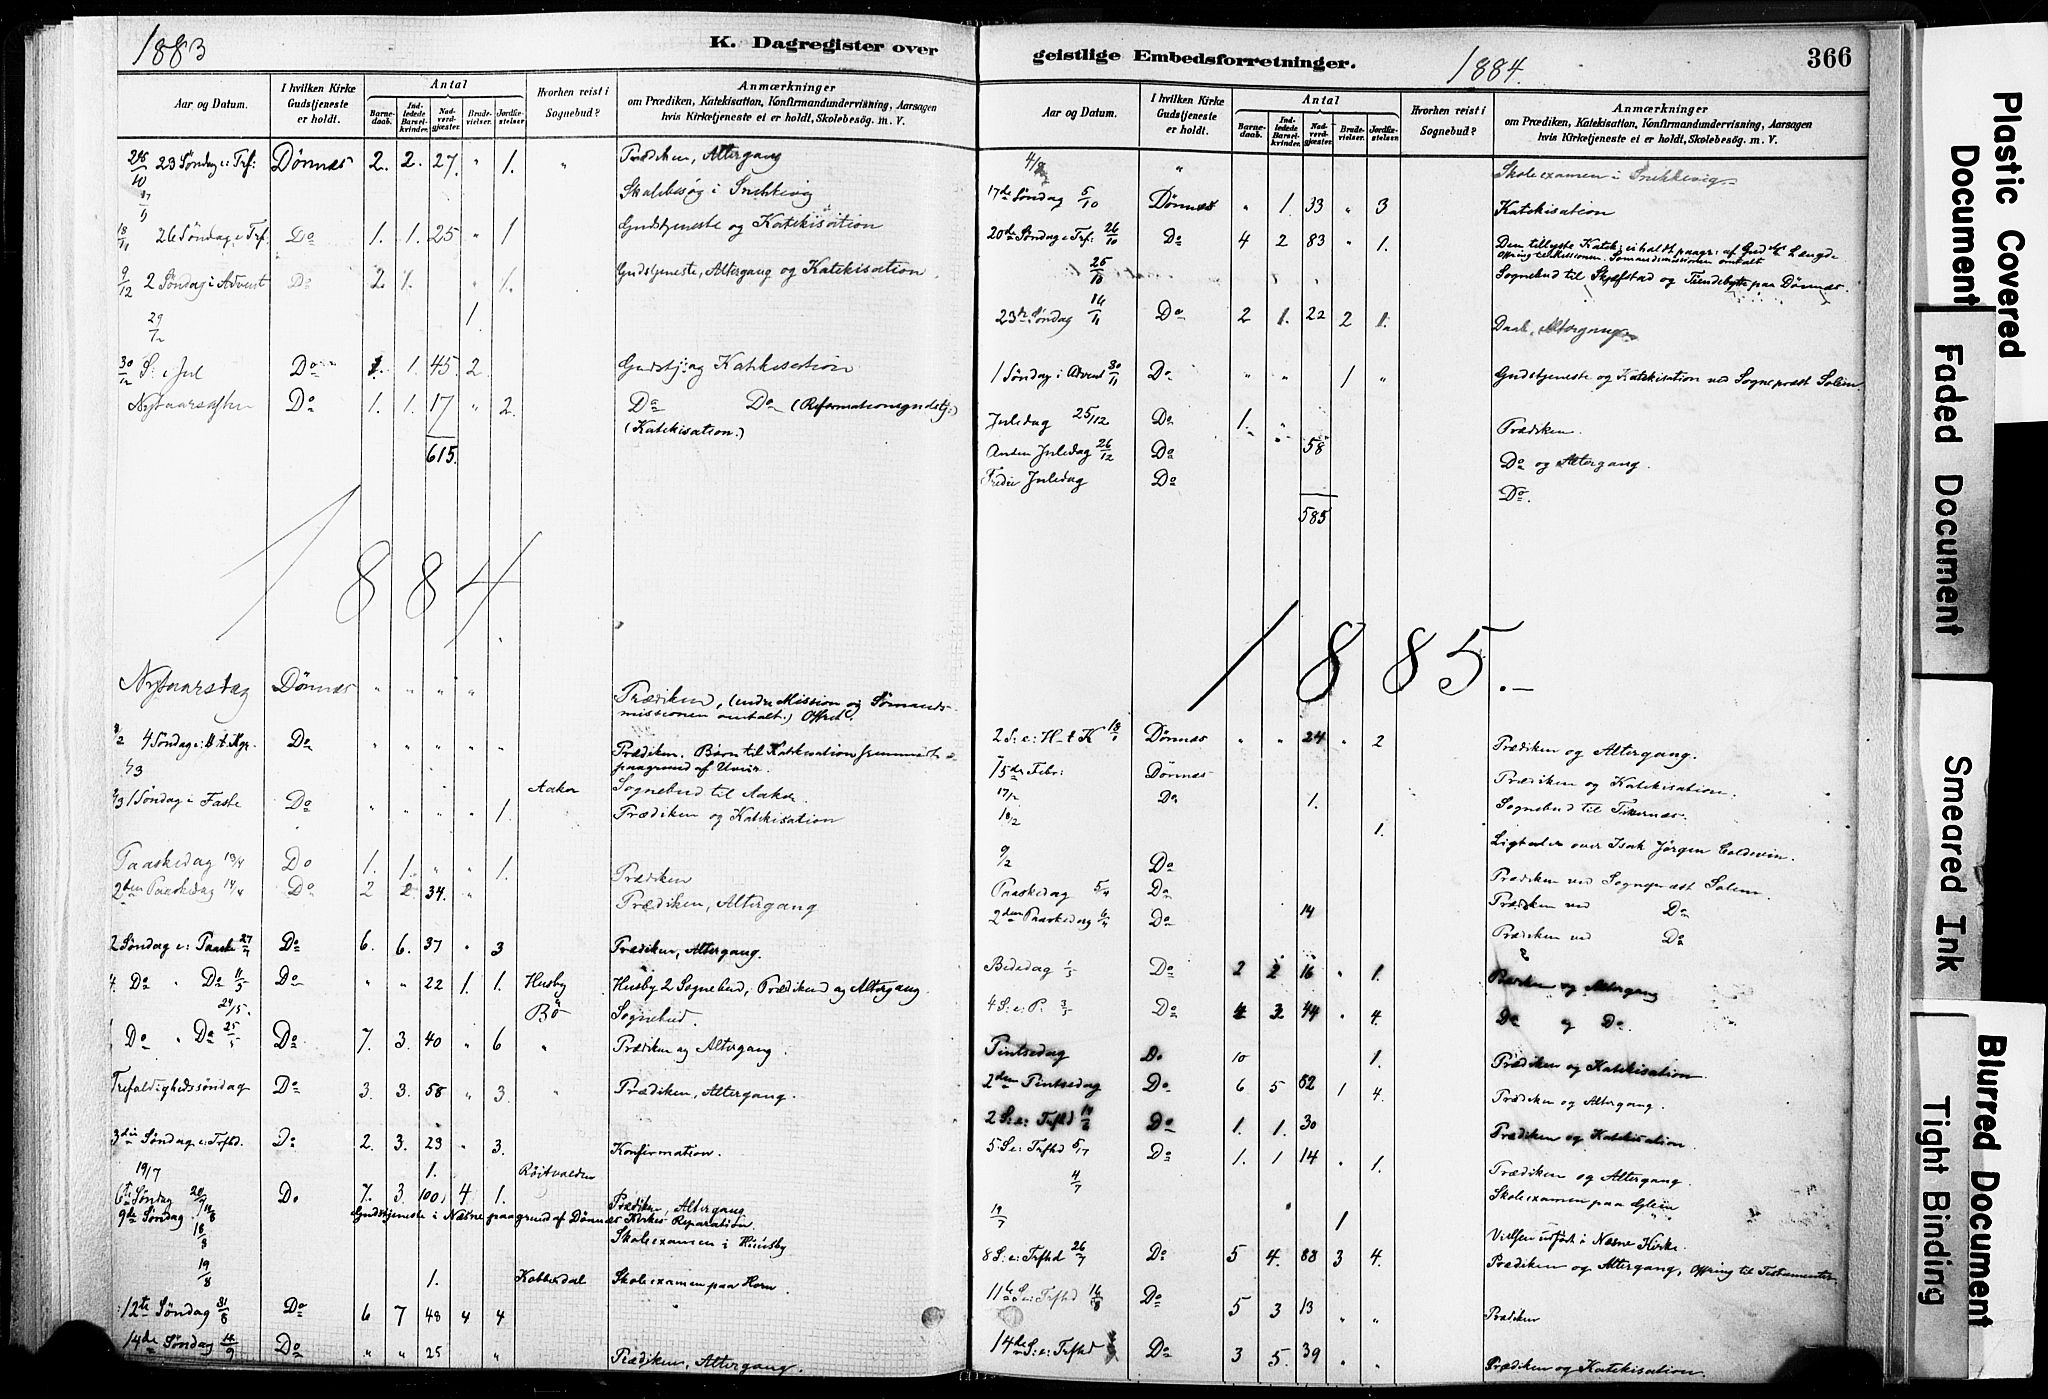 1883
K. Dagregister over
Aar og Datum. I hvilken Kirke Gudstjeneste er holdt. Antal Barnedaab. Indledede Barselkvinder. Nadverdgjæster. Brudevielser. Jordfæstelser. Hvorhen reist i Sognebud? Anmærkninger om Prædiken, Katekisation, Konfirmandundervisning, Aarsagen hvis Kirketjeneste ei er holdt, Skolebesög. m. V.
23 Söndag e: Trf: Dönnæs 2. 2. 27. " 1. " Prædiken, Altergang
Skolebesög i Snekkevig
18/11 26 Söndag e Trf. Do 1. 1. 25 " 1 Gudstjeneste og Katekisation
9/12 2 Söndag i Advent Do 2. 1. " 1. Gudstjeneste, Altergang og Katekisation.
1.
30/12 S: e Jul Do 1. 1. 45. 2. Gudstj: og Katekisation
Nytaarsaften Do 1. 1. 17 " 2. Do Do (Reformationsgudstj:)
(Katekisation.)
615.
1884
Nytaarsdag Dönnæs " " " " Prædiken, (indre Mission og Sömands-
missionen omtalt.) Offret.
4 Söndag e: H. t. Kgr. Do " " " " " Prædiken. Börn til Katekisation fremmött
paagrund af Uveir.
Aakar Sognebud til Aakar.
1 Söndag i Faste Do " " " " 1. Prædiken og Katekisation
Paaskedag 13/4 Do 1. 1. " " 1. Prædiken
2den Paaskedag 14/4 Do 2 2. 34. " Prædiken, Altergang
2 Söndag e: Paaske 27/4 Do 6. 6. 37 " 3 Prædiken, Altergang.
4. Do " Do 11/5 Do " " 22 1. 1. Husby Husby 2 Sognebud, Prædiken og Altergang.
24/5. Bö Sognebud.
Do " Do 25/5 Do 7. 3. 40 " 6 " Prædiken og Altergang.
Trefoldighedssöndag Do 3. 3. 58 " 3. " Prædiken, Altergang.
3die Söndag e: Trfhd. Do 2. 3. 23 " 3. Konfirmation.
19/7 1. Röitvalden
6te Söndag 20/7 Do 7. 3. 100. 4 1. Prædiken, Altergang
9de Söndag 10/8 Gudstjeneste i Næsne paagrund af Dönnæs Kirkes Reparation.
18/8 Skoleexamen i Husby
19/8 1. Kobberdal Skoleexamen paa Horn
12te Söndag 31/8 Do 6 7 48 4 4
14de Söndag 14/9 Do " " 25 " " Prædiken, Altergang.
geistlige Embedsforretninger.
1884.
366
Aar og Datum. I hvilken Kirke Gudstjeneste er holdt. Antal Barnedaab. Indledede Barselkvinder. Nadverdgjæster. Brudevielser. Jordfæstelser. Hvorhen reist i Sognebud? Anmærkninger om Prædiken, Katekisation, Konfirmandundervisning, Aarsagen hvis Kirketjeneste ei er holdt, Skolebesög. m. V.
" Skoleexamen i Snekkevig
17de Söndag 5/10 Dönnæs " 1. 33 " 3 Katekisation
20de Söndag e Trf: 26/10 Do 4 2 83 " 1. Den tillyste Katek: ei holdt paagr: af Gudstj: Længde
Offring til Missionen. Sömandsmissionen omtalt
25/10 Sognebud til Skjefstad og Tiendebytte paa Dönnæs.
23de Söndag 16/11 Do 2 1. 22 2 1. Daab, Altergang.
1 Söndag i Advent 30/11 Do " " " 1 " Gudstjeneste og Katekisation ved Sogneprest Solem.
Juledag 25/12 Do 1. " Prædiken.
Anden Juledag 26/12 Do 58 Do og Altergang.
Tredie Juledag Do Do.
585
1885.
2 S: e: H. t. K 18/1 Dönnæs " " 24 " 2 Prædiken og Altergang.
15de Febr: Dönnæs Prædiken og Katekisation.
17/2 Do 1. Sognebud til
18/2 1. Ligtale over Isak Jörgen Coldevin.
Do Prædiken ved Sogneprest Solem
Paaskedag 5/4 Do Prædiken ved Do
2den Paaskedag 6/4 Do 14 Prædiken ved Do
Bededag 1/5 Do 2 2 16 " 1. Prædiken og Altergang
4 S: e: P. 3/5 Do 4 3 44 " 4. Do og Do.
Pintsedag Do 10 1. Prædiken og Katekisation
2den Pintsedag Do 6 5 62 1 4. Prædiken og Altergang.
2 S: e: Trfhd 14/6 Do 1. 1. 30 Prædiken og Katekisation
5 S e: Trfhd 5/7 Do 1. 1 14 " 1. Prædiken og Altergang.
4/7 Skoleexamen paa Glein
19/7 1 Vielsen udført i Næsne Kirke.
8 S: e: Trfhd 26/7 Do 5 4. 88 3 4. Prædiken og Altergang, Offring til Testamenter.
11te S e: Trfhd 16/8 Do 5 3 13 " " Prædiken
14de S: e: Trfhd Do 3 5. 39 " " Prædiken og Katekisation.
Plastic Covered Document
Faded Document
Smeared Ink
Blurred Document
Tight Binding